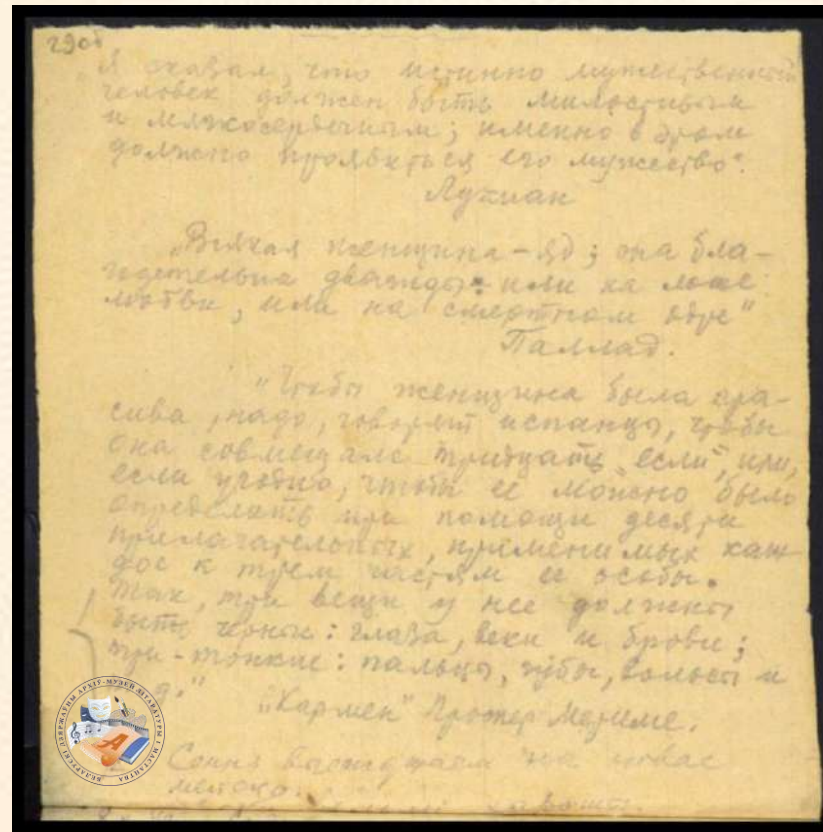 29об
Я сказал, что истинно мужественный
человек должен быть милостивым
и мягкосердечным; именно в этом
должно проявиться его мужество".
Лукиан
„Всякая женщина – яд; она бла-
годетельна дважды: или на ложе
любви, или на смертном одре"
Паллад.
"Чтобы женщина была кра-
сива, надо, говорят испанцы, чтобы
она совмещала тридцать „если", или,
если угодно, чтобы ее можно было
определить при помощи десяти
прилагательных, применимых каж-
дое к трем частям ее особы.
Так, три вещи у нее должны
быть черные: глаза, веки и брови;
три – тонкие: пальцы, губы, волосы и
д."
"Кармен" Проспер Мериме.
молоко.
БЕЛАРУСКІ ДЗЯРЖАЎНЫ АРХІЎ-МУЗЕЙ ЛІТАРАТУРЫ І МАСТАЦТВА